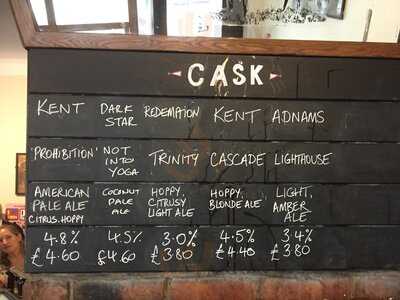 CASK
KENT DARK STAR REDEMATION KENT ADNAMS
'PROHIBITION' NOT INTO YOGA TRINITY CASCADE LIGHTHOUSE
AMERICAN PALE ALE CITRUS, HOPPY COCONUT PALE ALE HOPPY, CITRUSY LIGHT ALE HOPPY, BLONDE ALE LIGHT, AMBER ALE
4.8% 4.5% 3.0% 4.5% 3.4%
£4.60 £4.60 £3.80 £4.40 £3.80